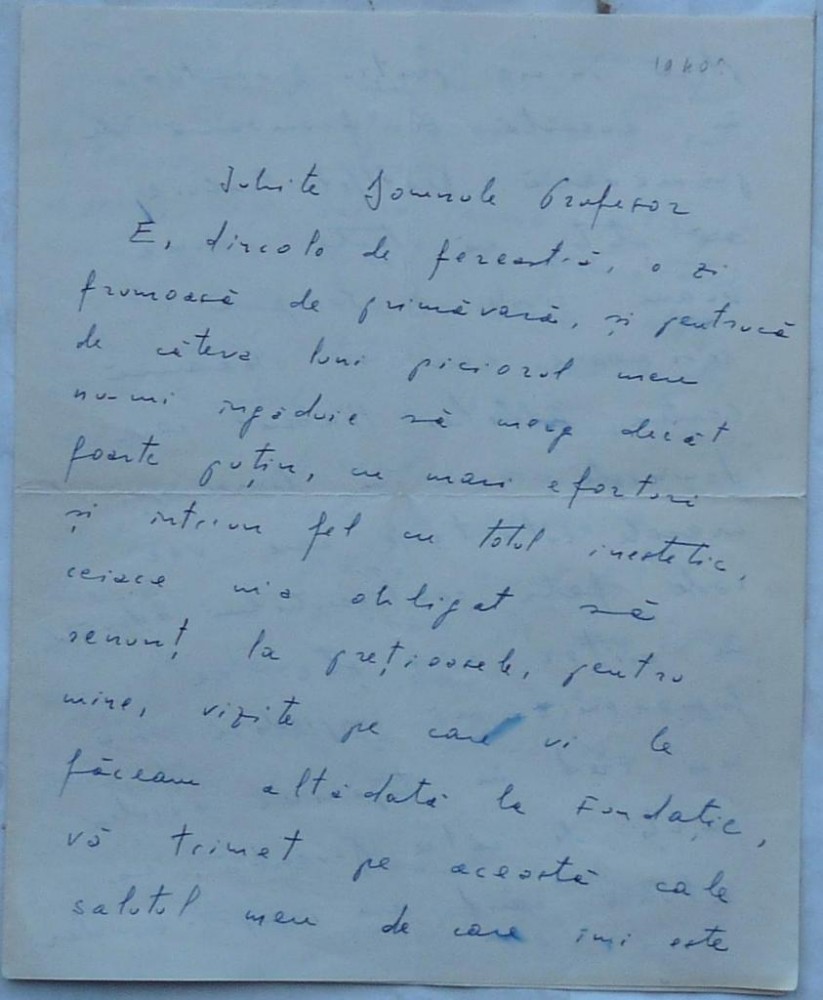 Iubite Domnule Profesor
E, dincolo de fereastră, o zi
frumoasă de primăvară, și pentrucă
de câteva luni piciorul meu
nu-mi îngăduie să merg decât
foarte puțin, cu mari eforturi
și intr-un fel cu totul inestetic,
ceiace m-a obligat să
renunț la prețioasele, pentru
mine, vizite pe care vi le
făceam altădată la Fundație,
vă trimet pe această cale
salutul meu de care imi este